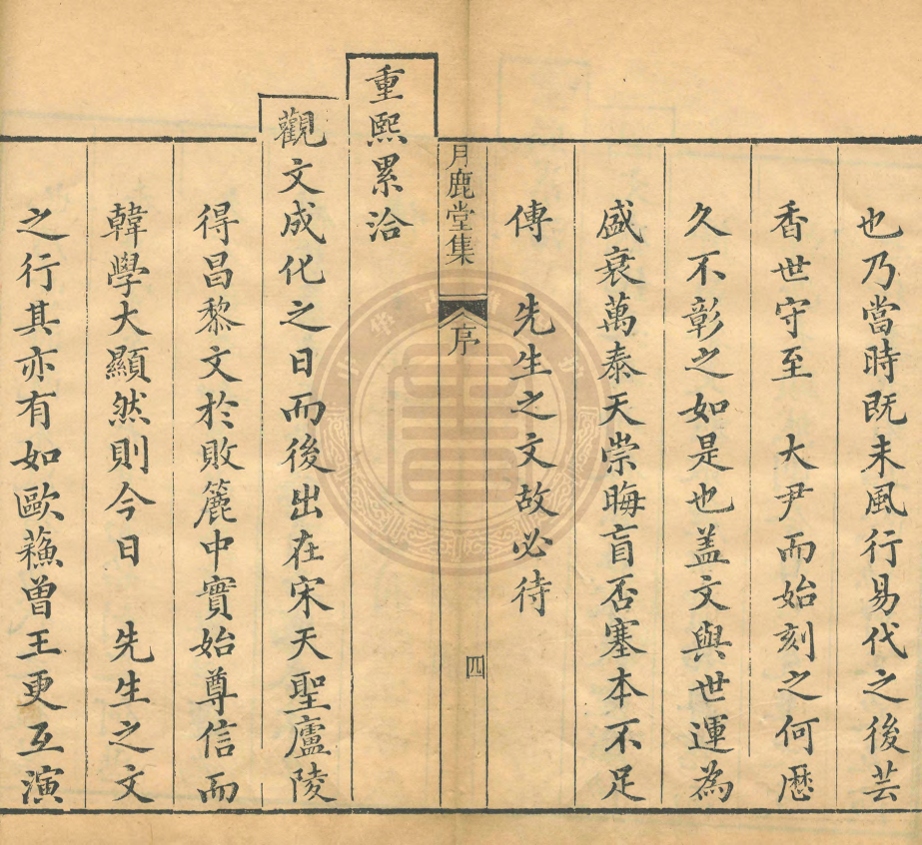 也乃當時既未風行易代之後芸
香世守至 大尹而始刻之何歷
久不彰之如是也盖文與世運為
盛衰萬泰天崇晦盲否塞本不足
傳 先生之文故必待
月鹿堂集 序 四
重熙累洽
觀文成化之日而後出在宋天聖廬陵
得昌黎文於敗簏中實始尊信而
韓學大顯然則今日 先生之文
之行其亦有如歐蘓曾王更互演